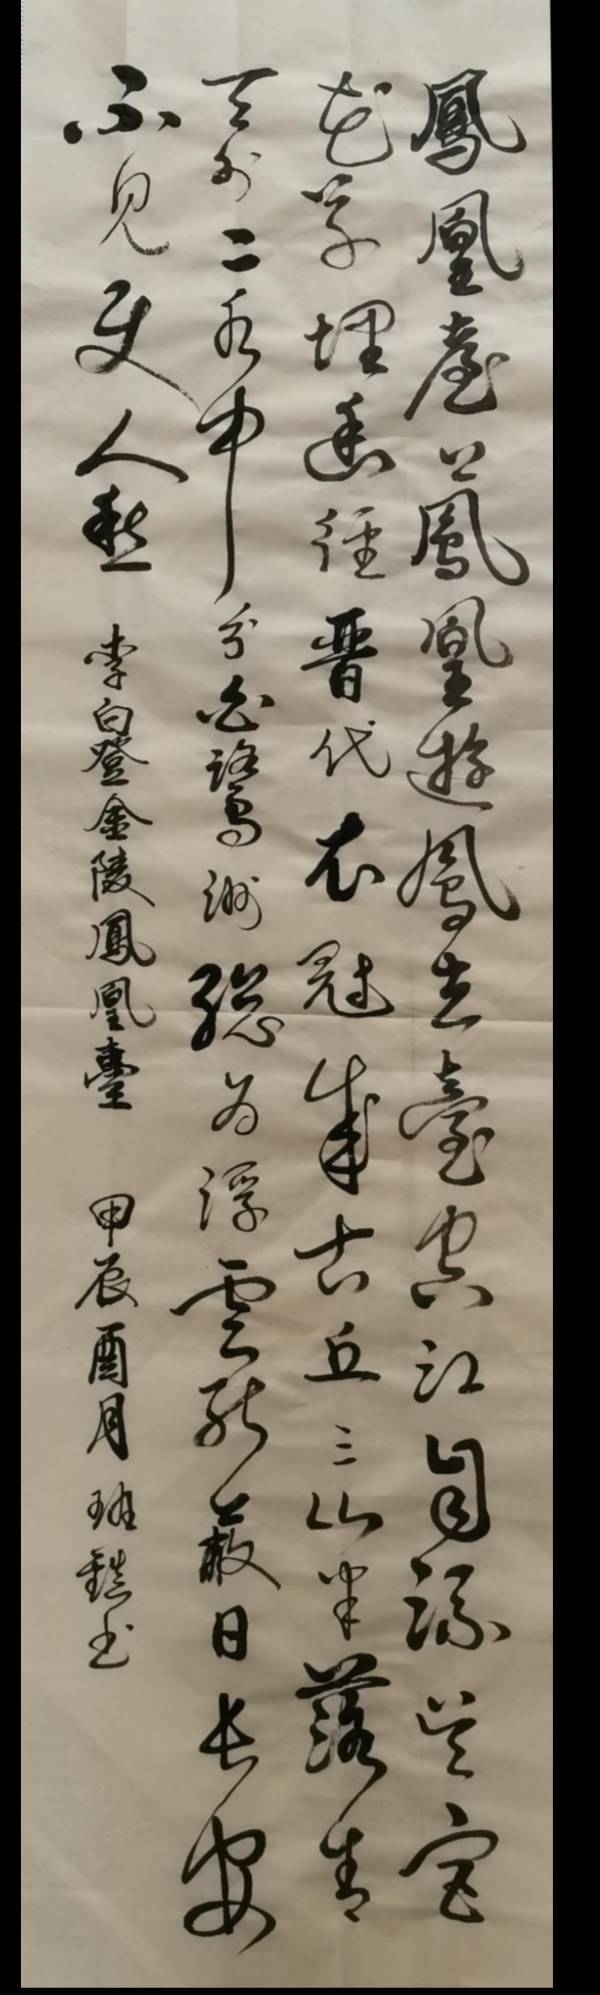 鳳凰臺上鳳凰遊鳳去臺空江自流吳宮
花草埋幽徑晉代衣冠成古丘三山半落青
天外二水中分白鷺洲總為浮雲能蔽日長安
不見使人愁 李白登金陵鳳凰臺 甲辰酉月 書